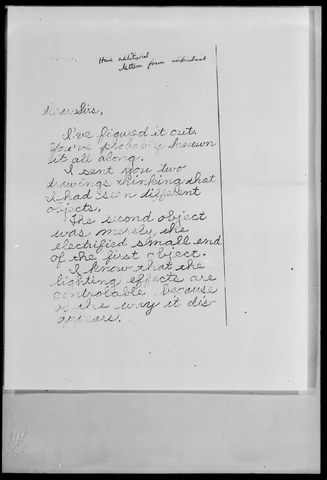 Have additional
letter from
Dear Sirs,
I've figured it out.
You've probably known
it all along.
I sent you two
drawings thinking that
I had seen different
objects.
The second object
was merely the
electrified small end
of the first object.
I know that the
lighting effects are
controlable because
of the way it dis-
appears.